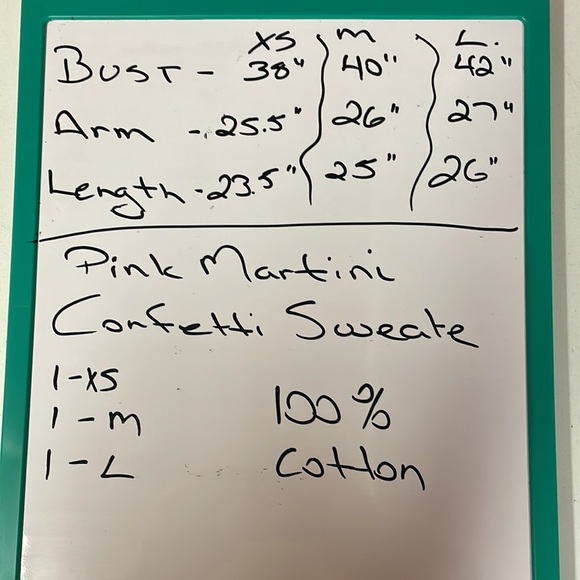 XS M L.
BUST - 38" 40" 42"
Arm - 25.5" 26" 27"
Length - 23.5" 25" 26"
Pink Martini
Confetti Sweate
1-XS
1-M
1-L
100%
Cotton